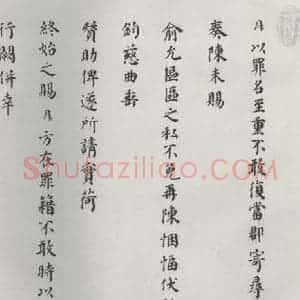 且以罪名至重不敢復當郡寄尋
奏陳未賜
俞允區區之私不免再陳悃愊伏
鈞慈曲垂
贊助俾遂所請實荷
終始之賜且方在罪籍不敢時以
行闕併幸
Shufaziliao.com